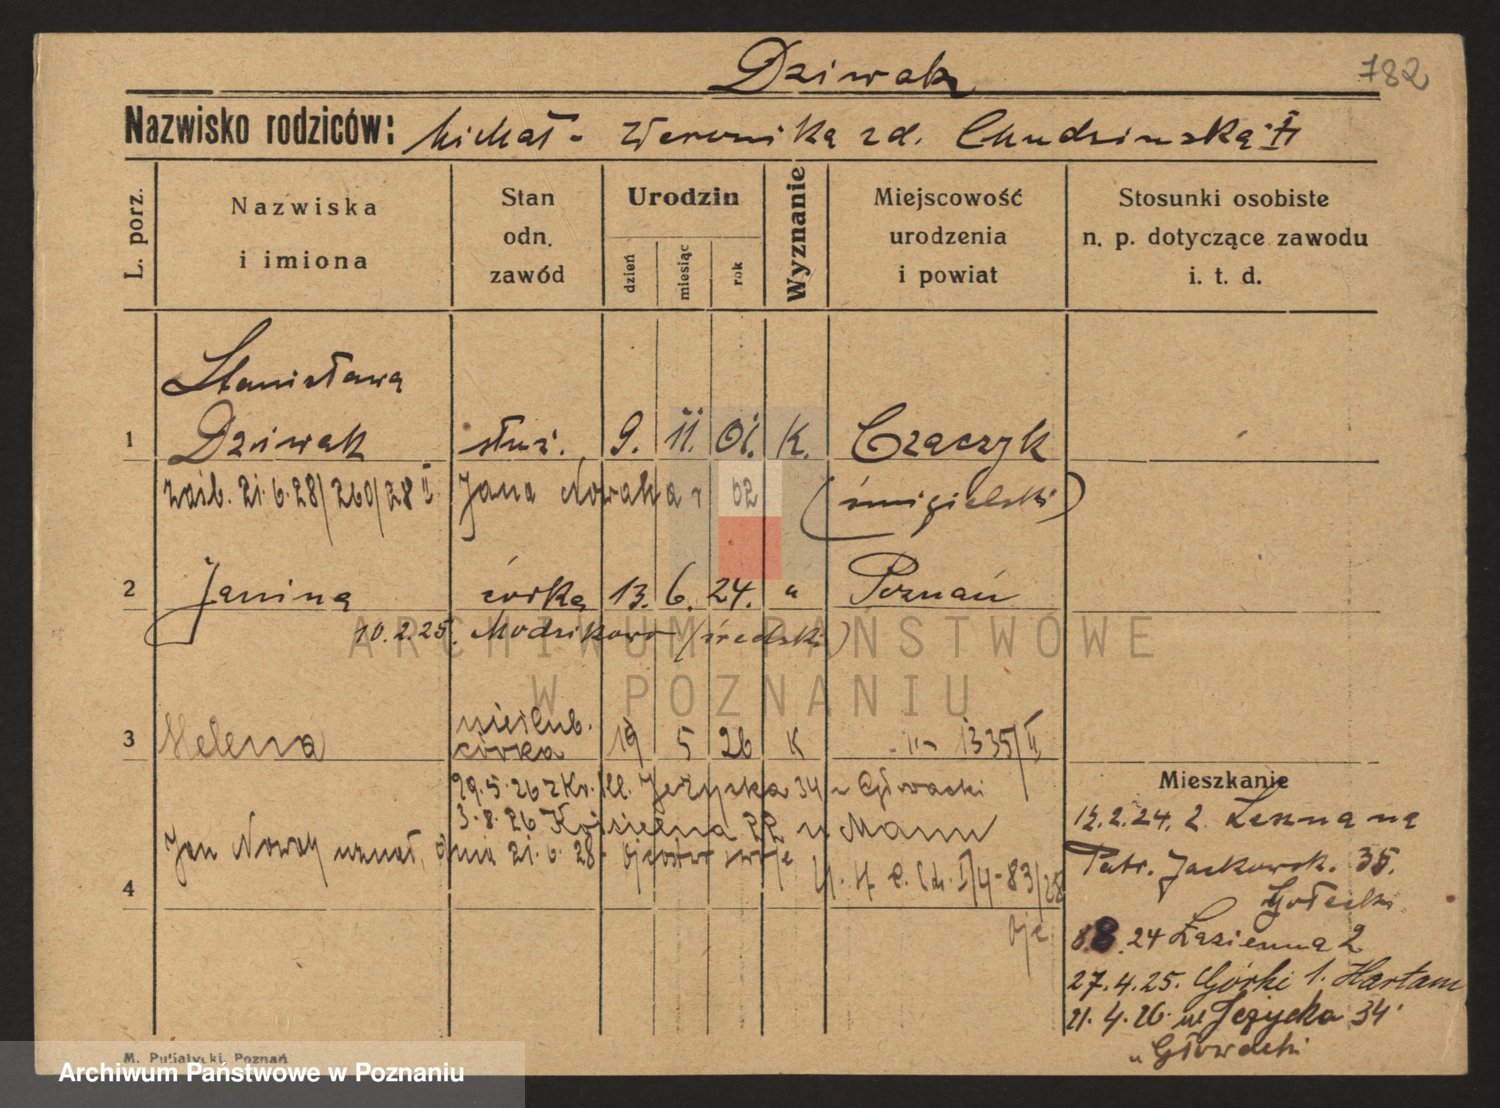 Dziwak
782
Nazwisko rodziców: Michał - Weronika zd. Chudzinska
L. porz.
Nazwiska
i imiona
Stan
odn.
zawód
Urodzin
dzień
miesiąc
rok
Wyznanie
Miejscowość
urodzenia
i powiat
Stosunki osobiste
n. p. dotyczące zawodu
i. t. d.
Stanisława
1 Dziwak służ. 9. 11. 01. K. Czaczyk
zaśb. 21.6.28/260/28 II Jana Nowaka r 02 (śmigielski)
2 Janina córka 13. 6. 24. " Poznań
10.2.25. Modzikowo (średzki)
nieślub.
3 Helena córka 19 5 26 K -"- 1335/II
29.5.26 z Kr. Kl. Jeżycka 34 u Głowacki
3.8.26 22 u Mann
Jan Nowak uznał, dnia 21.6.28. ojcostwo swoje
4
83/28
ojc
Mieszkanie
12.2.24. z Leszna na
Patr. Jackowsk. 35.
Gołecki
8.8.24 Łazienna 2
27.4.25. Górki 1. Hartam
21.4.26 ul Jeżycka 34
u Głowacki
M. Putiatycki, Poznań
ARCHIWUM PAŃSTWOWE
W POZNANIU
Archiwum Państwowe w Poznaniu